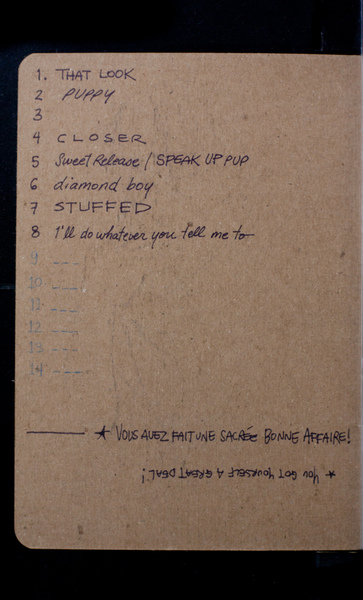 1. THAT LOOK
2 PUPPY
3
4 CLOSER
5 Sweet Release / SPEAK UP PUP
6 diamond boy
7 STUFFED
8 I'll do whatever you tell me to
9 ---
10 ---
11 ---
12 ---
13 ---
14 ---
★ VOUS AVEZ FAIT UNE SACRÉE BONNE AFFAIRE!
★ YOU GOT YOURSELF A GREAT DEAL!